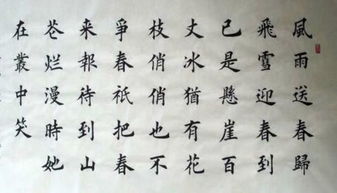 風雨送春歸
飛雪迎春到
已是懸崖百
丈冰猶有花
枝俏俏也不
爭春祇把春
来報待到山
花烂漫時她
在叢中笑